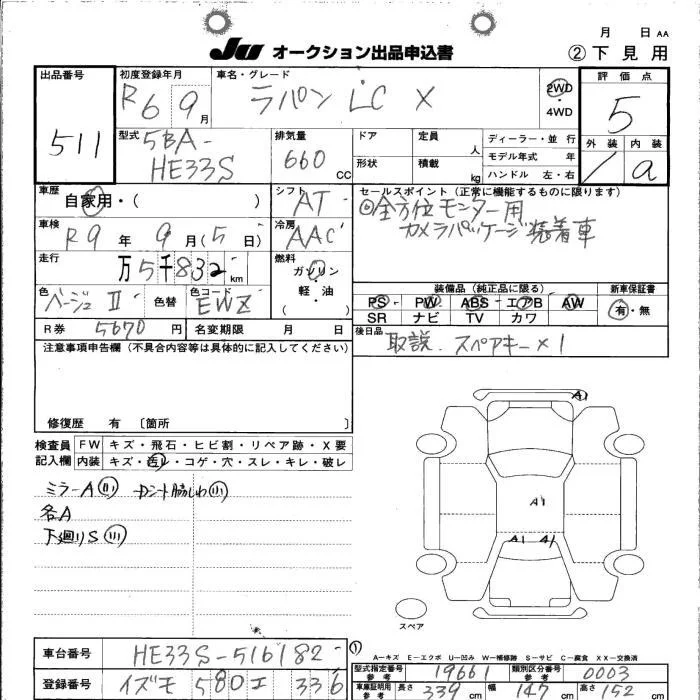 月 日 AA
JU オークション出品申込書 ②下見用
出品番号 511
初度登録年月 R6 9月
車名・グレード ラパン LC X
2WD・4WD
評価点 5
外装 内装 a
型式 5BA-HE33S
排気量 660 CC
ドア 定員 人
形状 積載 kg
ディーラー・並行
モデル年式 年
ハンドル 左・右
車歴 自家用・( )
シフト AT
セールスポイント(正常に機能するものに限ります)
◎全方位モニター用
カメラパッケージ装着車
車検 R9年 9月(5日)
冷房 AAC
走行 万5千832km
燃料 ガソリン・軽・油 ( )
色 ベージュⅡ 色替 色コード EWZ
装備品(純正品に限る) 新車保証書
PS PW ABS エアB AW 有・無
SR ナビ TV カワ
R券 5670円 名変期限 月 日
後日品 取説.スペアキー×1
注意事項申告欄(不具合内容等は具体的に記入してください)
修復歴 有 〔箇所 〕
検査員記入欄 FW キズ・飛石・ヒビ割・リペア跡・X要
内装 キズ・汚レ・コゲ・穴・スレ・キレ・破レ
ミラーA小 Dシート脇しわ小
各A
下廻りS小
A1
A1
A1 A1
スペア
A-キズ E-エクボ U-凹み W-補修跡 S-サビ C-腐食 XX-交換済
車台番号 HE33S-516182
型式指定番号 参考 19661 類別区分番号 参考 0003
登録番号 イズモ 580 エ 336
車庫証明用 参考 長さ 339cm 幅 147cm 高さ 152cm